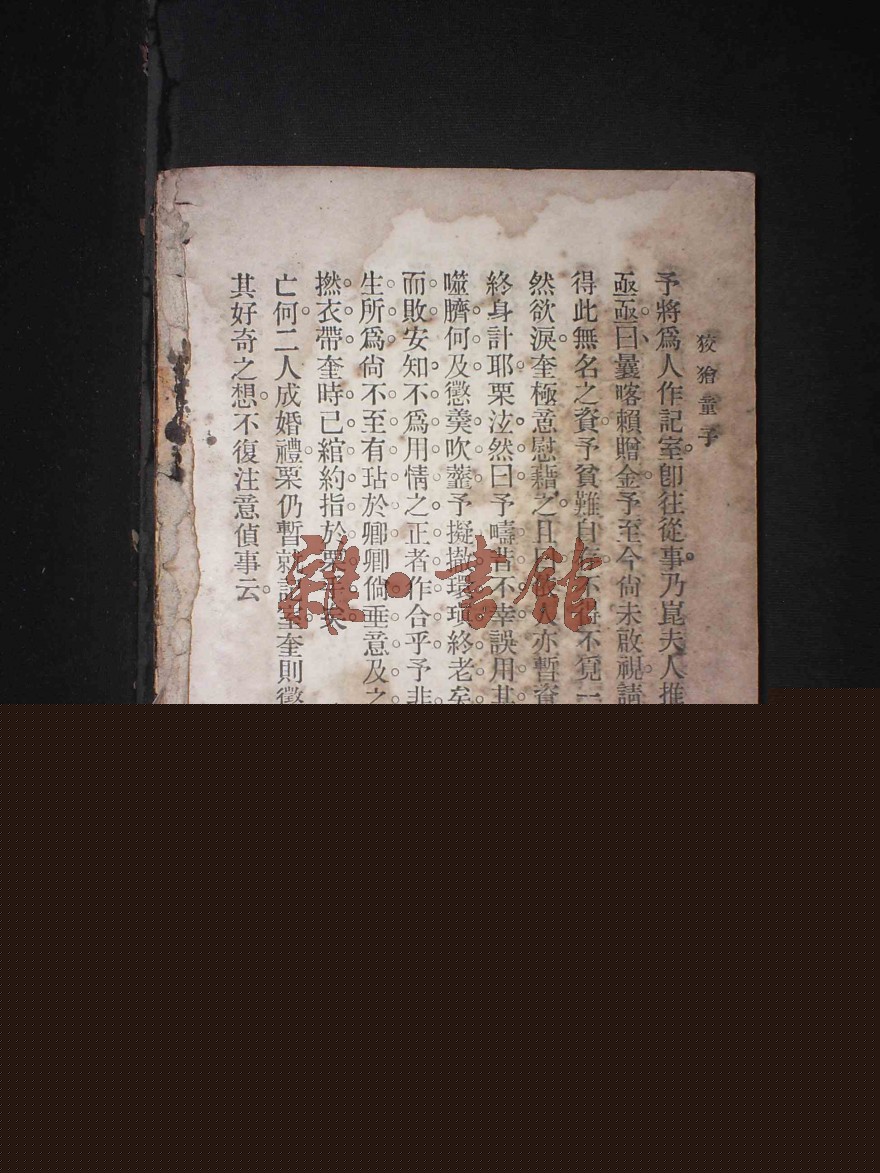 狡獪童子
予將爲人作記室卽往從事乃崑夫人推
亟亟曰曩喀賴贈金予至今尙未啟視請
得此無名之資予貧難自不得不覓一
然欲淚奎極意慰藉之且曰人亦暫資
終身計耶栗泫然曰予疇昔不幸誤用其
噬臍何及懲羮吹虀予擬撤環瑱終老矣
而敗安知不爲用情之正者作合乎予非
生所爲尙不至有玷於卿卿倘垂意及之
撚衣帶奎時已綰約指於栗手矣
亡何二人成婚禮栗仍暫就記室奎則懲
其好奇之想不復注意偵事云
雜·書館